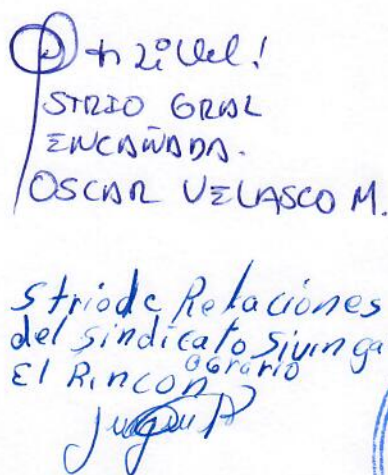 STRIO GRAL
ENCAÑADA.
OSCAR VELASCO M.
Striode Relaciones
del sindicato Sivinga
Agrario
El Rincon